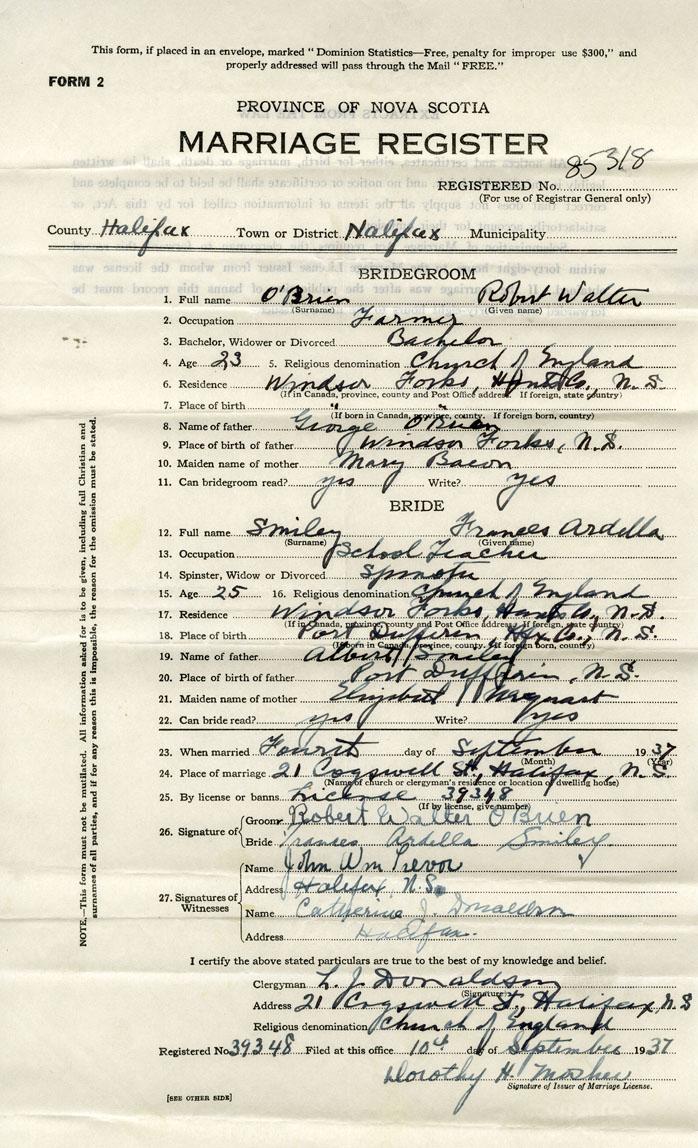 This form, if placed in an envelope, marked "Dominion Statistics—Free, penalty for improper use $300," and
properly addressed will pass through the Mail "FREE."
FORM 2
PROVINCE OF NOVA SCOTIA
MARRIAGE REGISTER
REGISTERED No. 85318
(For use of Registrar General only)
County Halifax Town or District Halifax Municipality
BRIDEGROOM
1. Full name O'Brien Robert Walter
(Surname) (Given name)
2. Occupation Farmer
3. Bachelor, Widower or Divorced Bachelor
4. Age 23 5. Religious denomination Church of England
6. Residence Windsor Forks, Hants Co., N. S.
(If in Canada, province, county and Post Office address. If foreign, state country)
7. Place of birth " "
(If born in Canada, province, county. If foreign born, country)
8. Name of father George O'Brien
9. Place of birth of father Windsor Forks, N.S.
10. Maiden name of mother Mary Bacon
11. Can bridegroom read? yes Write? yes
BRIDE
12. Full name Smiley Frances Ardella
(Surname) (Given name)
13. Occupation School Teacher
14. Spinster, Widow or Divorced Spinster
15. Age 25 16. Religious denomination Church of England
17. Residence Windsor Forks, Hants Co., N.S.
(If in Canada, province, county and Post Office address, If foreign, state country)
18. Place of birth Port Dufferin, Hfx Co., N. S.
(If born in Canada, province, county. If foreign born, country)
19. Name of father Albert Smiley
20. Place of birth of father Port Dufferin, N.S.
21. Maiden name of mother Elizabeth
22. Can bride read? yes Write? yes
23. When married Fourth day of September 1937
(Month) (Year)
24. Place of marriage 21 Cogswell St., Halifax, N.S
(Name of church or clergyman's residence or location of dwelling house)
25. By license or banns License 39348
(If by license, give number)
26. Signature of Groom Robert Walter O'Brien
Bride Frances Ardella Smiley
27. Signatures of Witnesses
Name John Wm Trevor
Address Halifax, N.S.
Name Catherine J. Donaldson
Address Halifax.
I certify the above stated particulars are true to the best of my knowledge and belief.
Clergyman L. J. Donaldson
(Signature)
Address 21 Cogswell St., Halifax N.S
Religious denomination Church of England
Registered No 39348 Filed at this office 10th day of September 1937
Dorothy H. Mosher
Signature of Issuer of Marriage License.
[SEE OTHER SIDE]
NOTE.—This form must not be mutilated. All information asked for is to be given, including full Christian and
surnames of all parties, and if for any reason this is impossible, the reason for the omission must be stated.